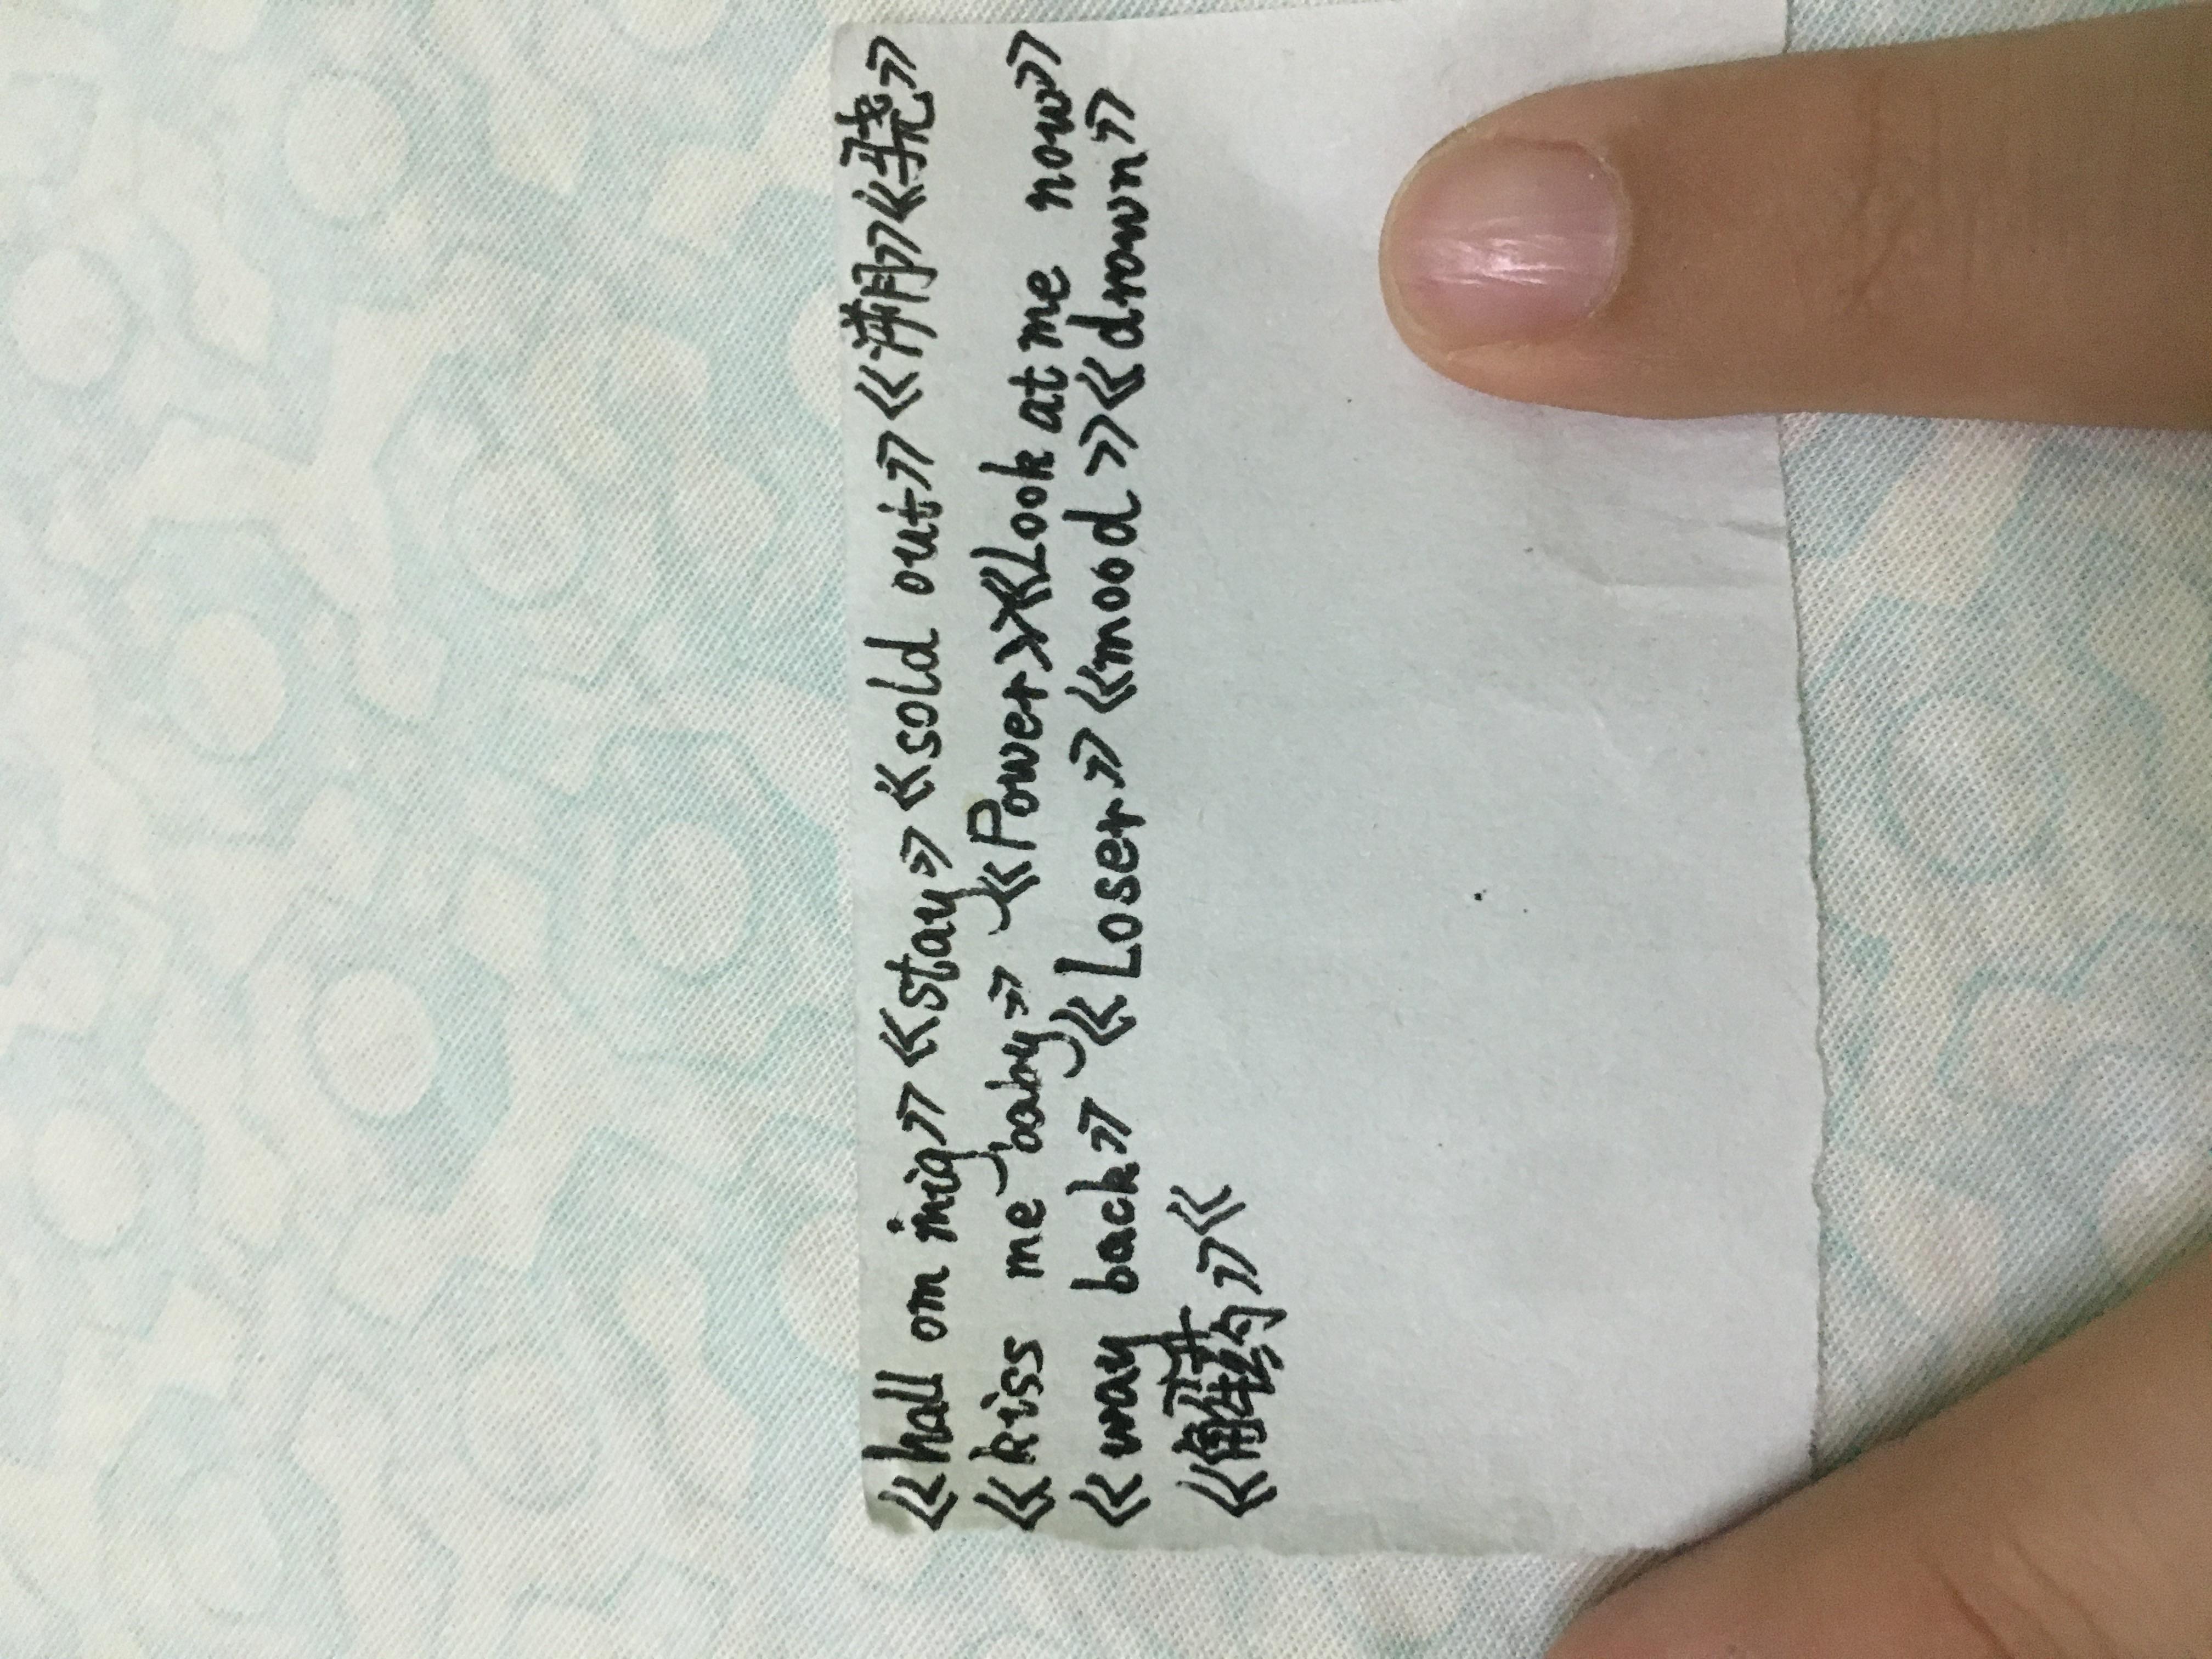 《hall om imig》《stay》《sold out》《溯》《骁》
《kiss me baby》《Power》《Look at me now》
《way back》《Loser》《mood》《drown》
《解药》《